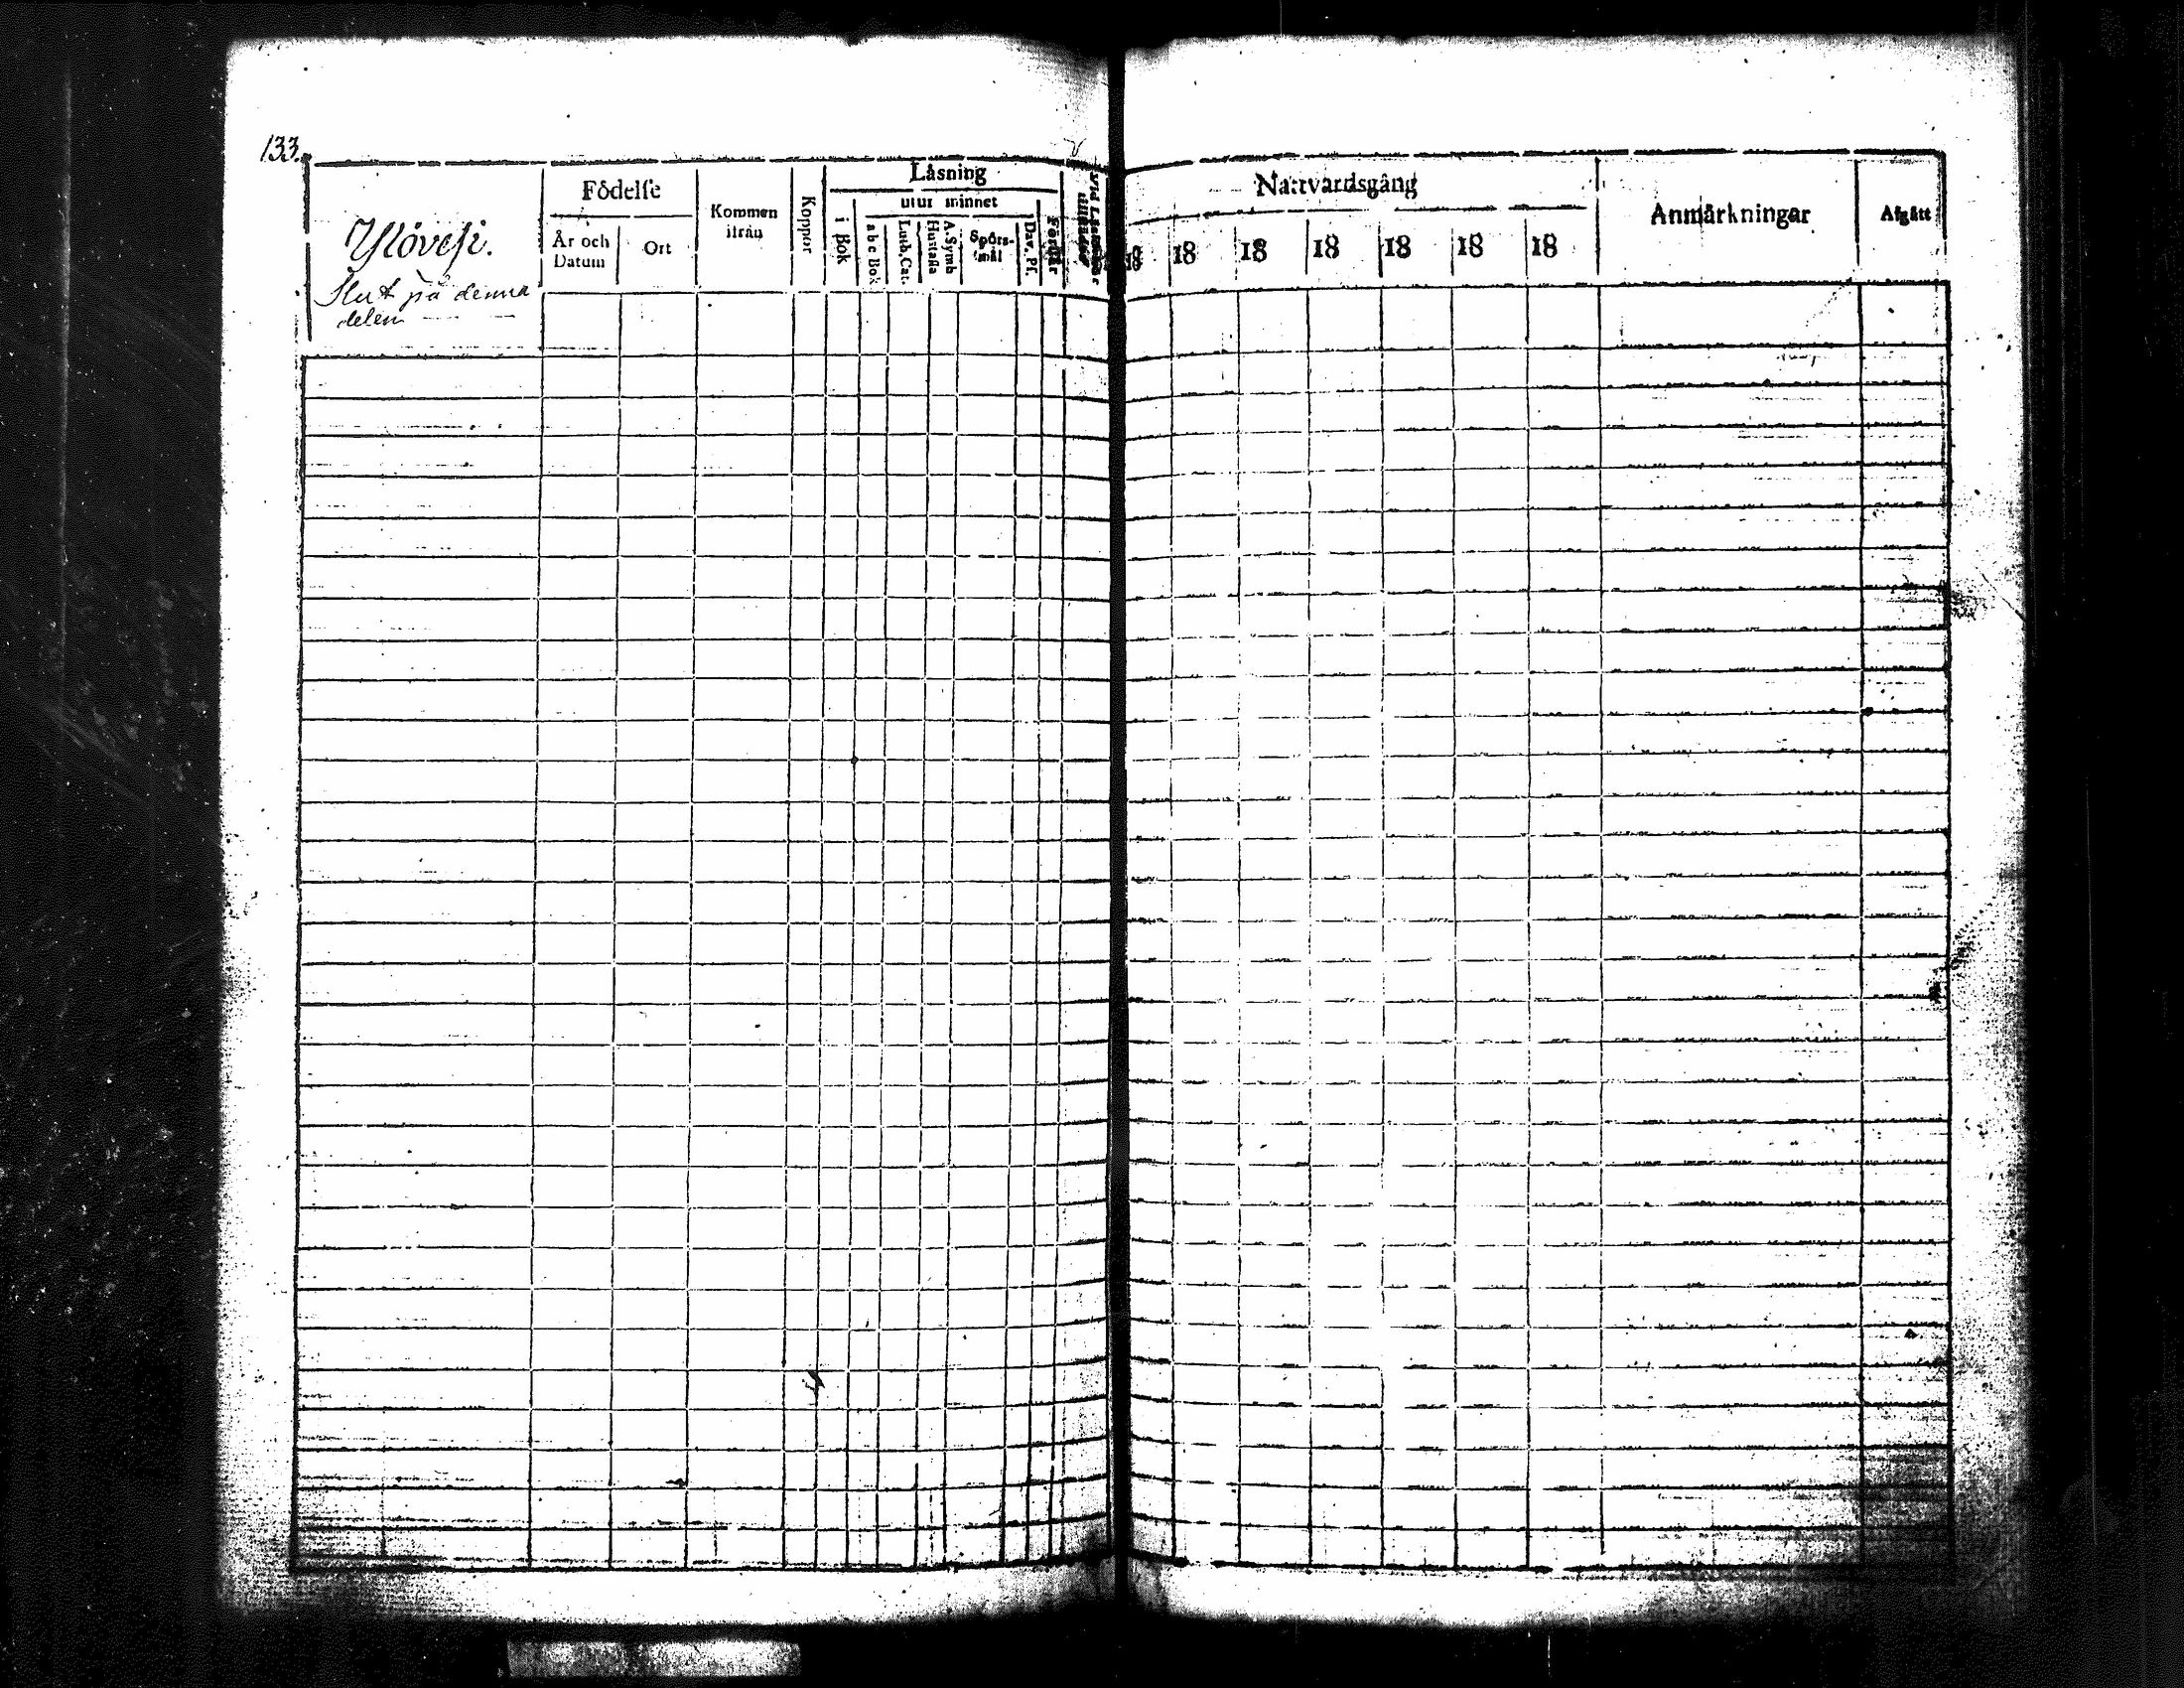 133.
Ylövesi.
Slut på denna
delen
Födelse
År och
Datum
Ort
Kommen
ifrån
Koppor
Läsning
i Bok
utur minnet
abc Bok
Luth. Cat.
Hustafla
A. Symb
Spörs-
mål
Dav. Ps.
Förstår
Nattvardsgång
18 18 18 18 18 18 18
Anmärkningar
Afgått